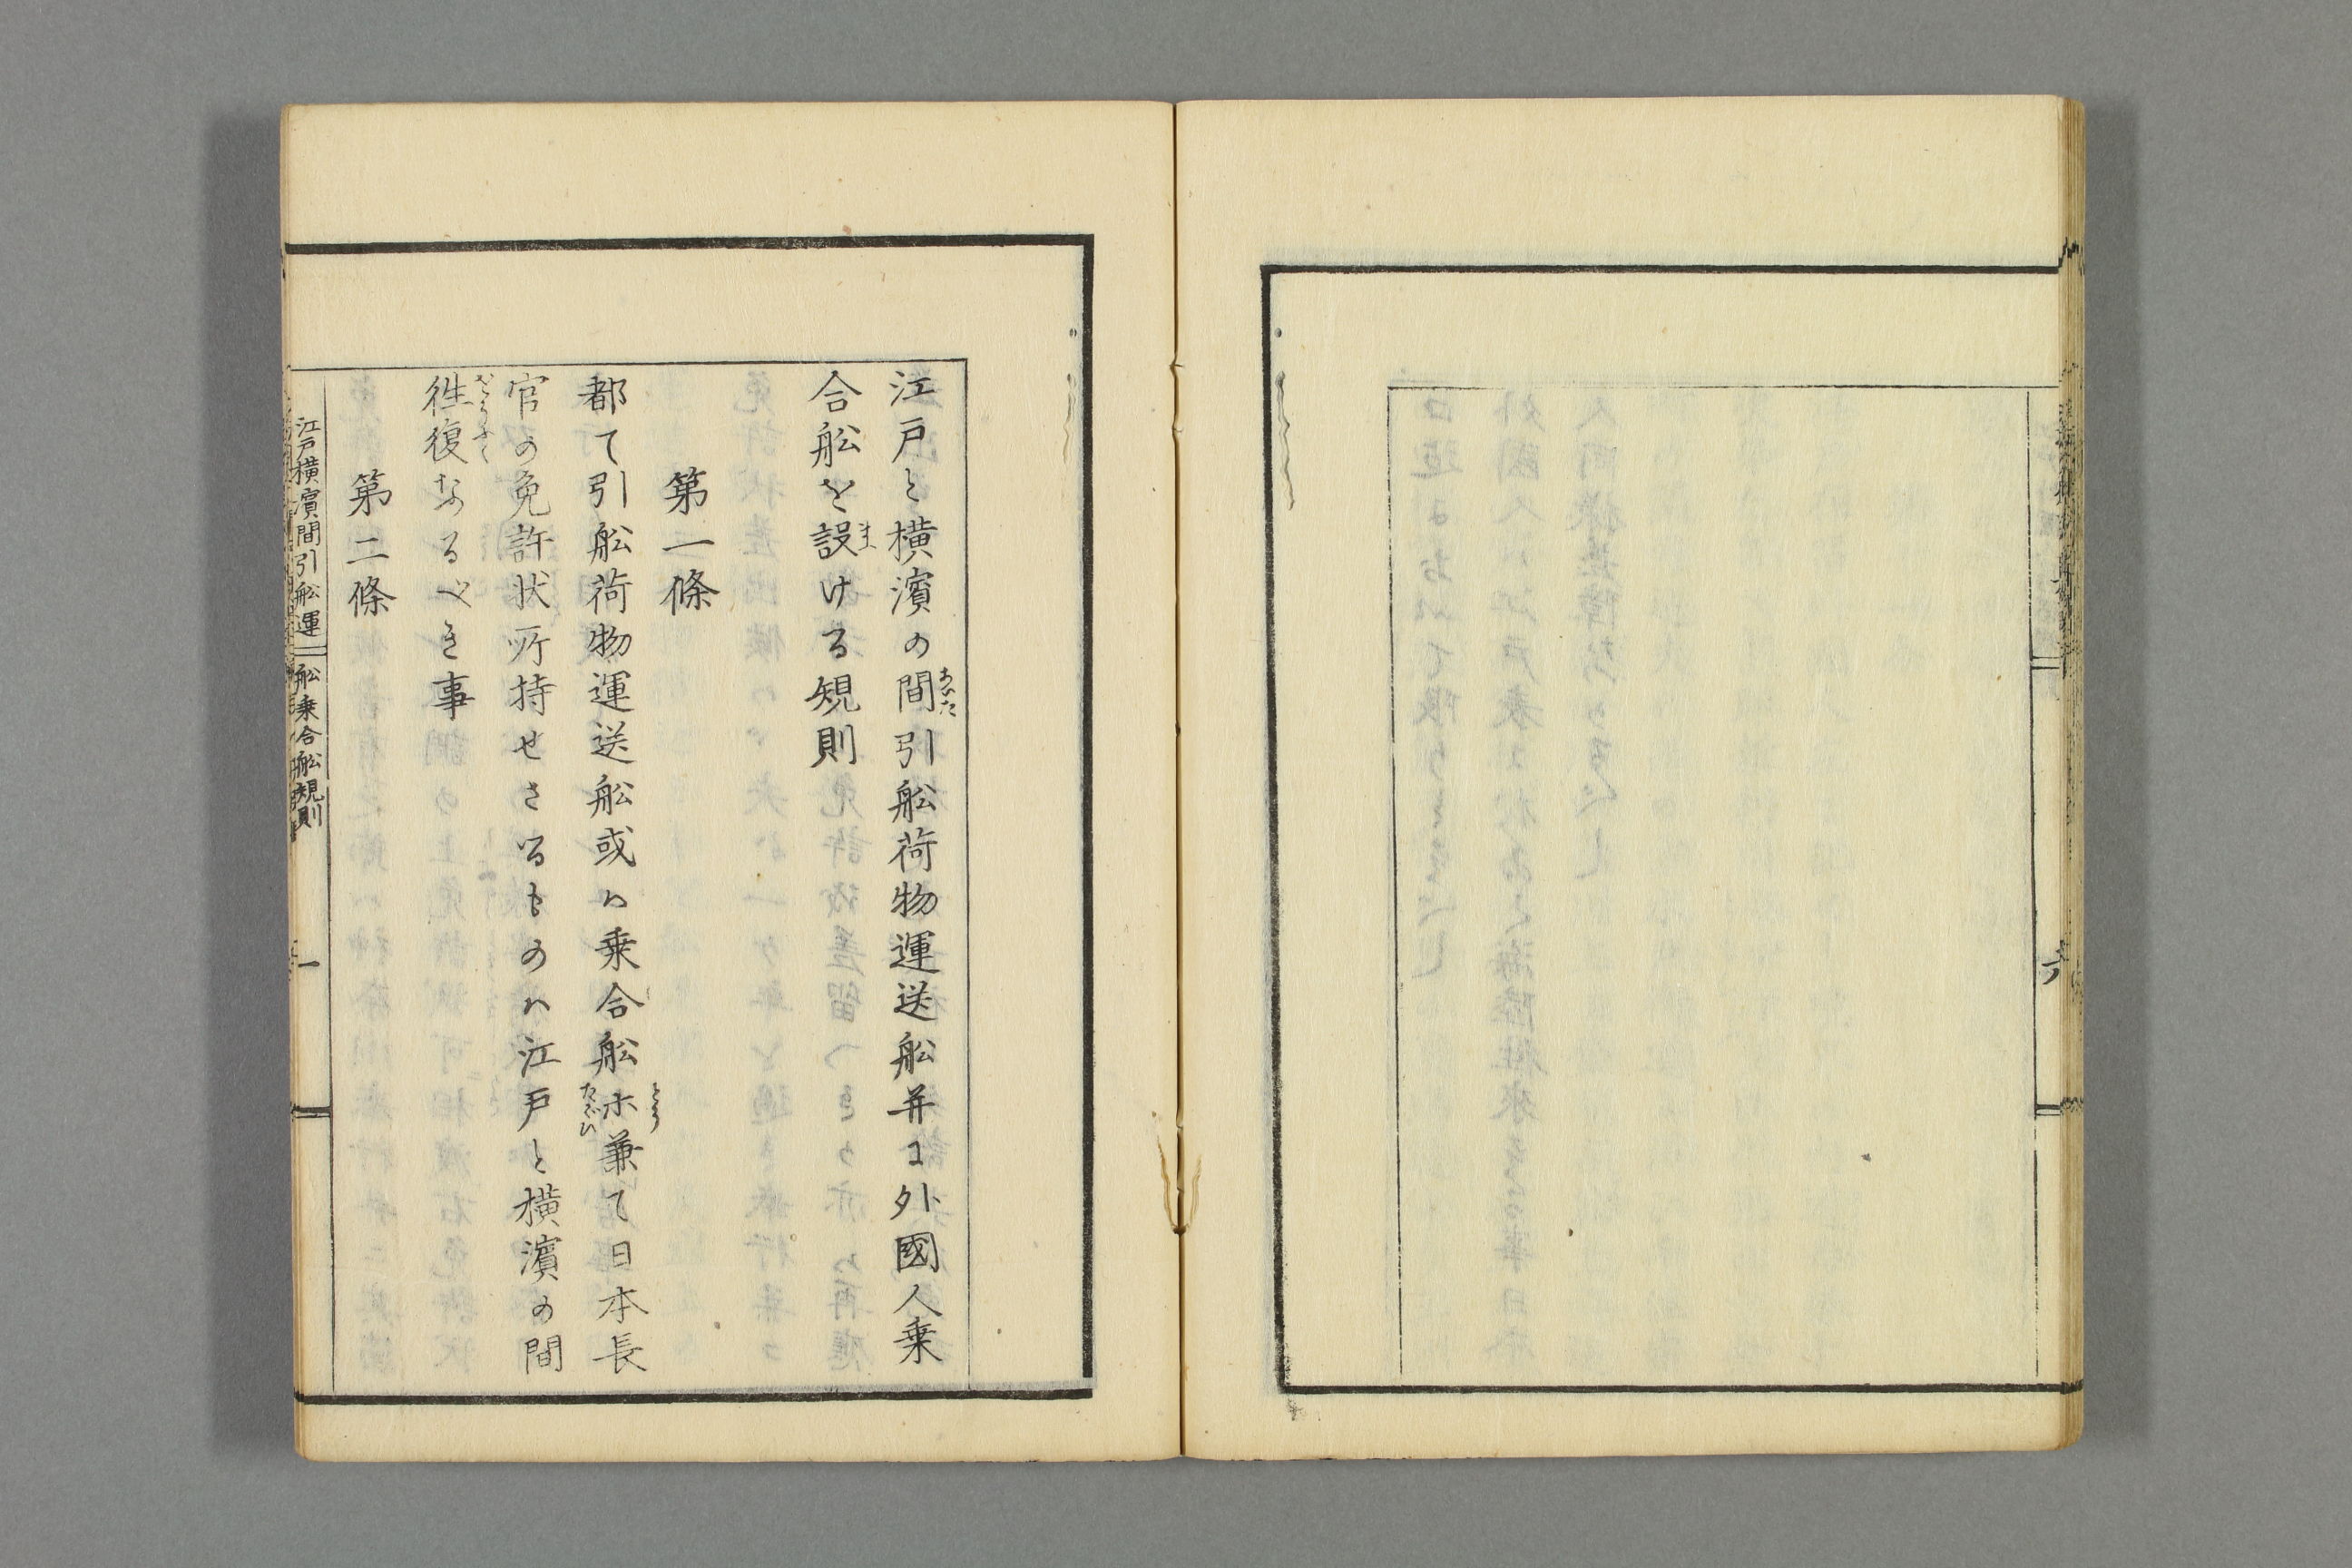 江戸と横濱の間引舩荷物運送舩并に外國人乗
合舩を設ける規則
第一條
都て引舩荷物運送舩或ハ乗合舩ホ兼て日本長
官の免許状所持せさるものハ江戸と横濱の間
徃復なるべき事
第二條
江戸横濱間引舩運
舩乗合舩規則
一
六